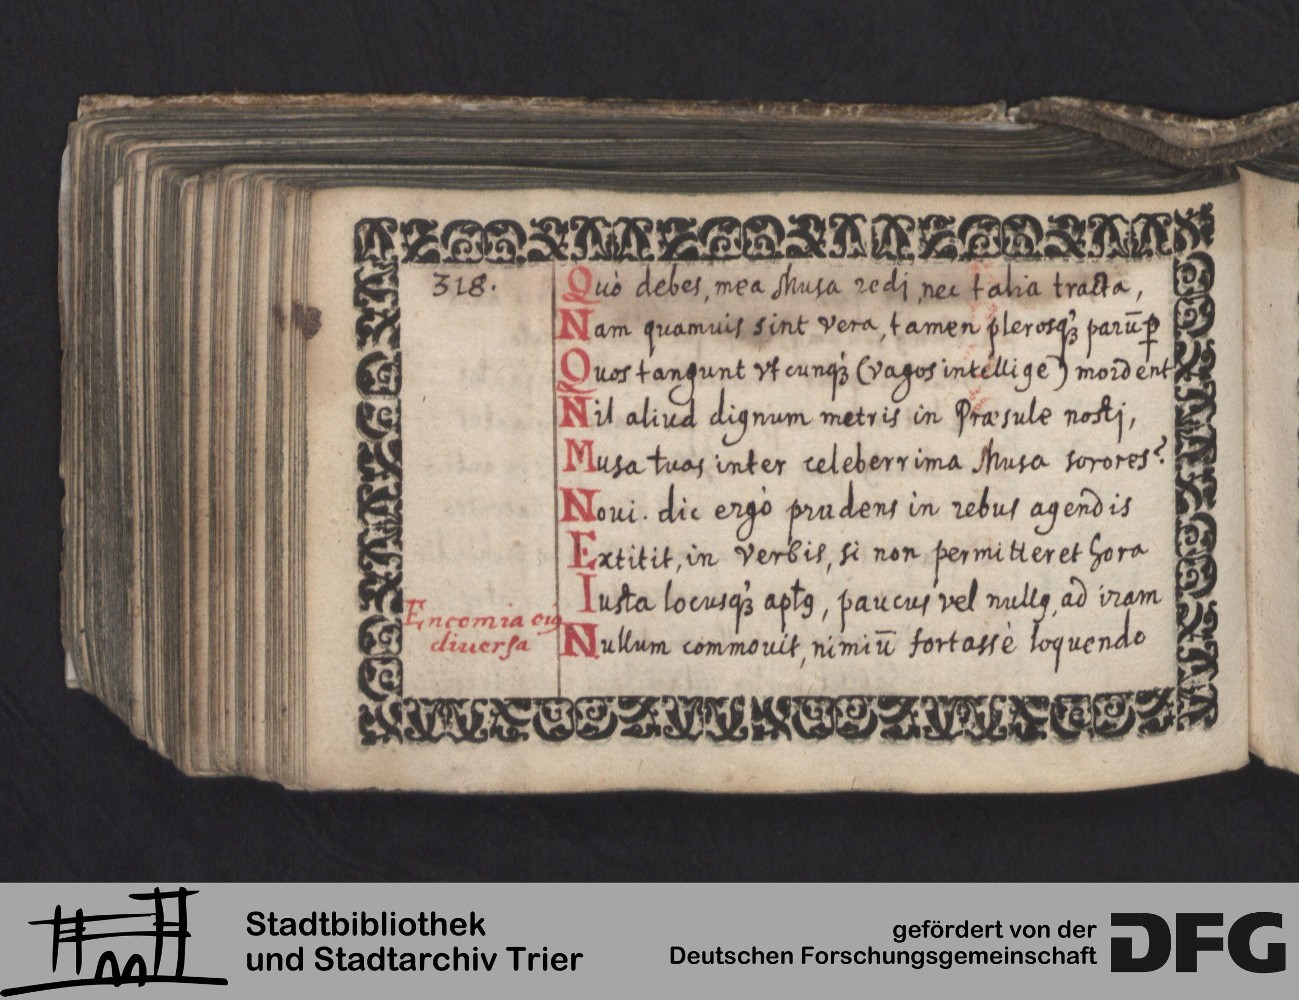 318.
Quò debes, mea Musa redi, nec talia tracta,
Nam quamuis sint vera, tamen plerosq́ꝫ parū ꝑ
Quos tangunt vtcunq́ꝫ (vagos intellige) mordent
Nil aliud dignum metris in Præsule nosti,
Musa tuas inter celeberrima Musa sorores?
Noui. dic ergò prudens in rebus agendis
Extitit, in verbis, si non permitteret hora
Iusta locusq́ꝫ aptꝰ, paucus vel nullꝰ, ad iram
Encomia eiꝰ
diuersa
Nullum commouit, nimiū fortassè loquendo
Stadtbibliothek
und Stadtarchiv Trier
gefördert von der
Deutschen Forschungsgemeinschaft
DFG